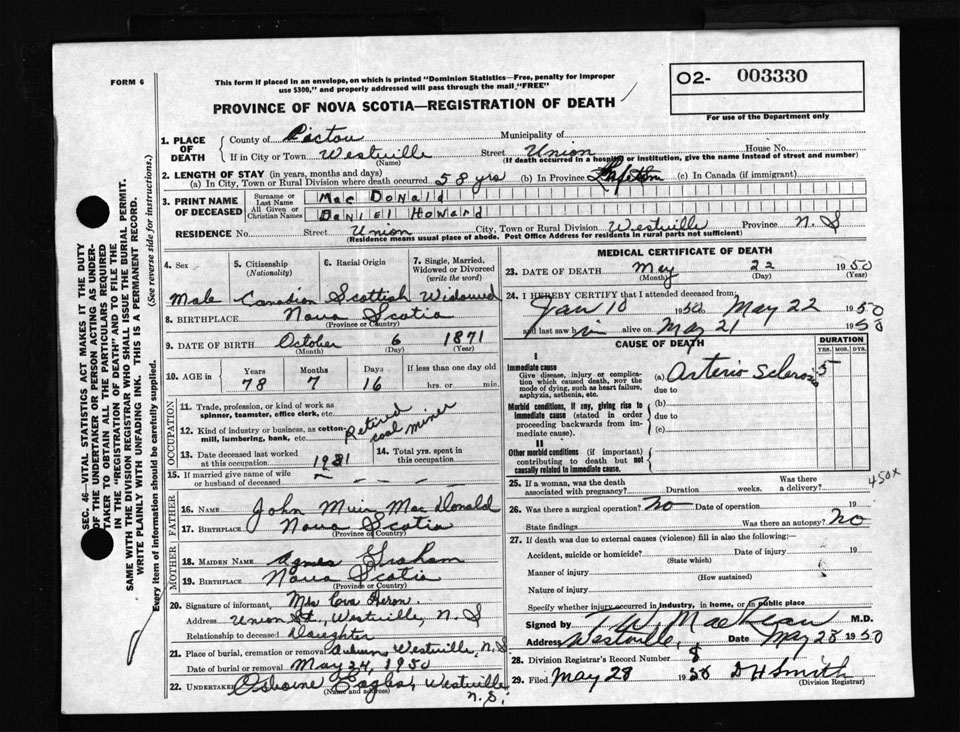 FORM 6
This form if placed in an envelope, on which is printed "Dominion Statistics—Free, penalty for improper
use $300," and properly addressed will pass through the mail "FREE"
O2- 003330
For use of the Department only
PROVINCE OF NOVA SCOTIA—REGISTRATION OF DEATH
SEC. 46—VITAL STATISTICS ACT MAKES IT THE DUTY
OF THE UNDERTAKER OR PERSON ACTING AS UNDER-
TAKER TO OBTAIN ALL THE PARTICULARS REQUIRED
IN THE "REGISTRATION OF DEATH" AND TO FILE THE
SAME WITH THE DIVISION REGISTRAR WHO SHALL ISSUE THE BURIAL PERMIT.
WRITE PLAINLY WITH UNFADING INK. THIS IS A PERMANENT RECORD.
Every item of information should be carefully supplied. (See reverse side for instructions.)
1. PLACE OF DEATH
County of Pictou Municipality of
If in City or Town Westville Street Union House No.
(Name) (If death occurred in a hospital or institution, give the name instead of street and number)
2. LENGTH OF STAY (in years, months and days)
(a) In City, Town or Rural Division where death occurred 58 yrs (b) In Province (c) In Canada (if immigrant)
3. PRINT NAME OF DECEASED
Surname or Last Name MacDonald
All Given or Christian Names Daniel Howard
RESIDENCE No. Street Union City, Town or Rural Division Westville Province N. S
(Residence means usual place of abode. Post Office Address for residents in rural parts not sufficient)
4. Sex 5. Citizenship (Nationality) 6. Racial Origin 7. Single, Married, Widowed or Divorced (write the word)
Male Canadian Scottish Widowed
8. BIRTHPLACE Nova Scotia
(Province or Country)
9. DATE OF BIRTH October 6 1871
(Month) (Day) (Year)
10. AGE in Years Months Days If less than one day old
78 7 16 hrs. or min.
OCCUPATION
11. Trade, profession, or kind of work as
spinner, teamster, office clerk, etc.
12. Kind of industry or business, as cotton-
mill, lumbering, bank, etc.
Retired
coal miner
13. Date deceased last worked
at this occupation 1931
14. Total yrs. spent in
this occupation
15. If married give name of wife
or husband of deceased
FATHER
16. Name John Muir MacDonald
17. Birthplace Nova Scotia
(Province or Country)
MOTHER
18. Maiden Name Agnes Graham
19. Birthplace Nova Scotia
(Province or Country)
20. Signature of informant, Mrs Heron.
Address Union St., Westville, N. S
Relationship to deceased Daughter
21. Place of burial, cremation or removal Auburn, Westville, N. S
Date of burial or removal May 24, 1950
22. Undertaker Osborne Eagles, Westville
(Name and address) N. S.
MEDICAL CERTIFICATE OF DEATH
23. DATE OF DEATH May 22 1950
(Month) (Day) (Year)
24. I HEREBY CERTIFY that I attended deceased from
Jan 10 1950 May 22 1950
and last saw him alive on May 21 1950
CAUSE OF DEATH
DURATION
YRS. MOS. DYS.
I
Immediate cause
Give disease, injury or complica-
tion which caused death, NOT the
mode of dying, such as heart failure,
asphyxia, asthenia, etc.
(a) Arterio Sclerosis 5
due to
Morbid conditions, if any, giving rise to
immediate cause (stated in order
proceeding backwards from im-
mediate cause).
(b)
due to
(c)
II
Other morbid conditions (if important)
contributing to death but not
causally related to immediate cause.
25. If a woman, was the death
associated with pregnancy? Duration weeks. Was there
a delivery?
450x
26. Was there a surgical operation? No Date of operation 19
State findings Was there an autopsy? No
27. If death was due to external causes (violence) fill in also the following:
Accident, suicide or homicide? Date of injury 19
(State which)
Manner of injury
(How sustained)
Nature of injury
Specify whether injury occurred in industry, in home, or in public place
Signed by M.D.
Address Westville, Date May 28 1950
28. Division Registrar's Record Number 8
29. Filed May 28 1950 D H Smith
(Division Registrar)